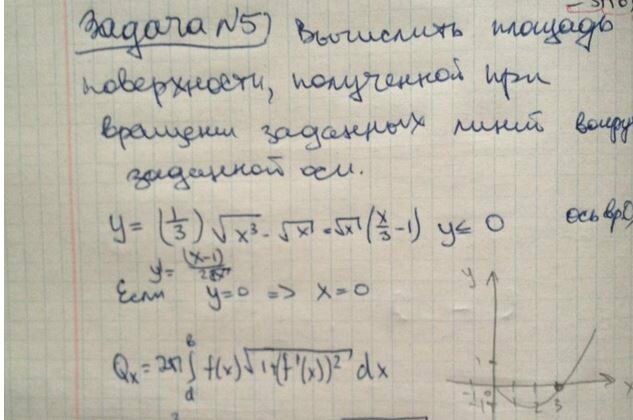 Задача №5) Вычислить площадь
поверхности, полученной при
вращении заданных линий вокруг
заданной оси.
y = (1/3) √x³ - √x = √x (x/3 - 1) y ≤ 0 ось вр
y' = (x-1)/2√x
Если y=0 => x=0
Qx = 2π ∫ f(x) √1+(f'(x))² dx
y
x
1
-1
0
2
3